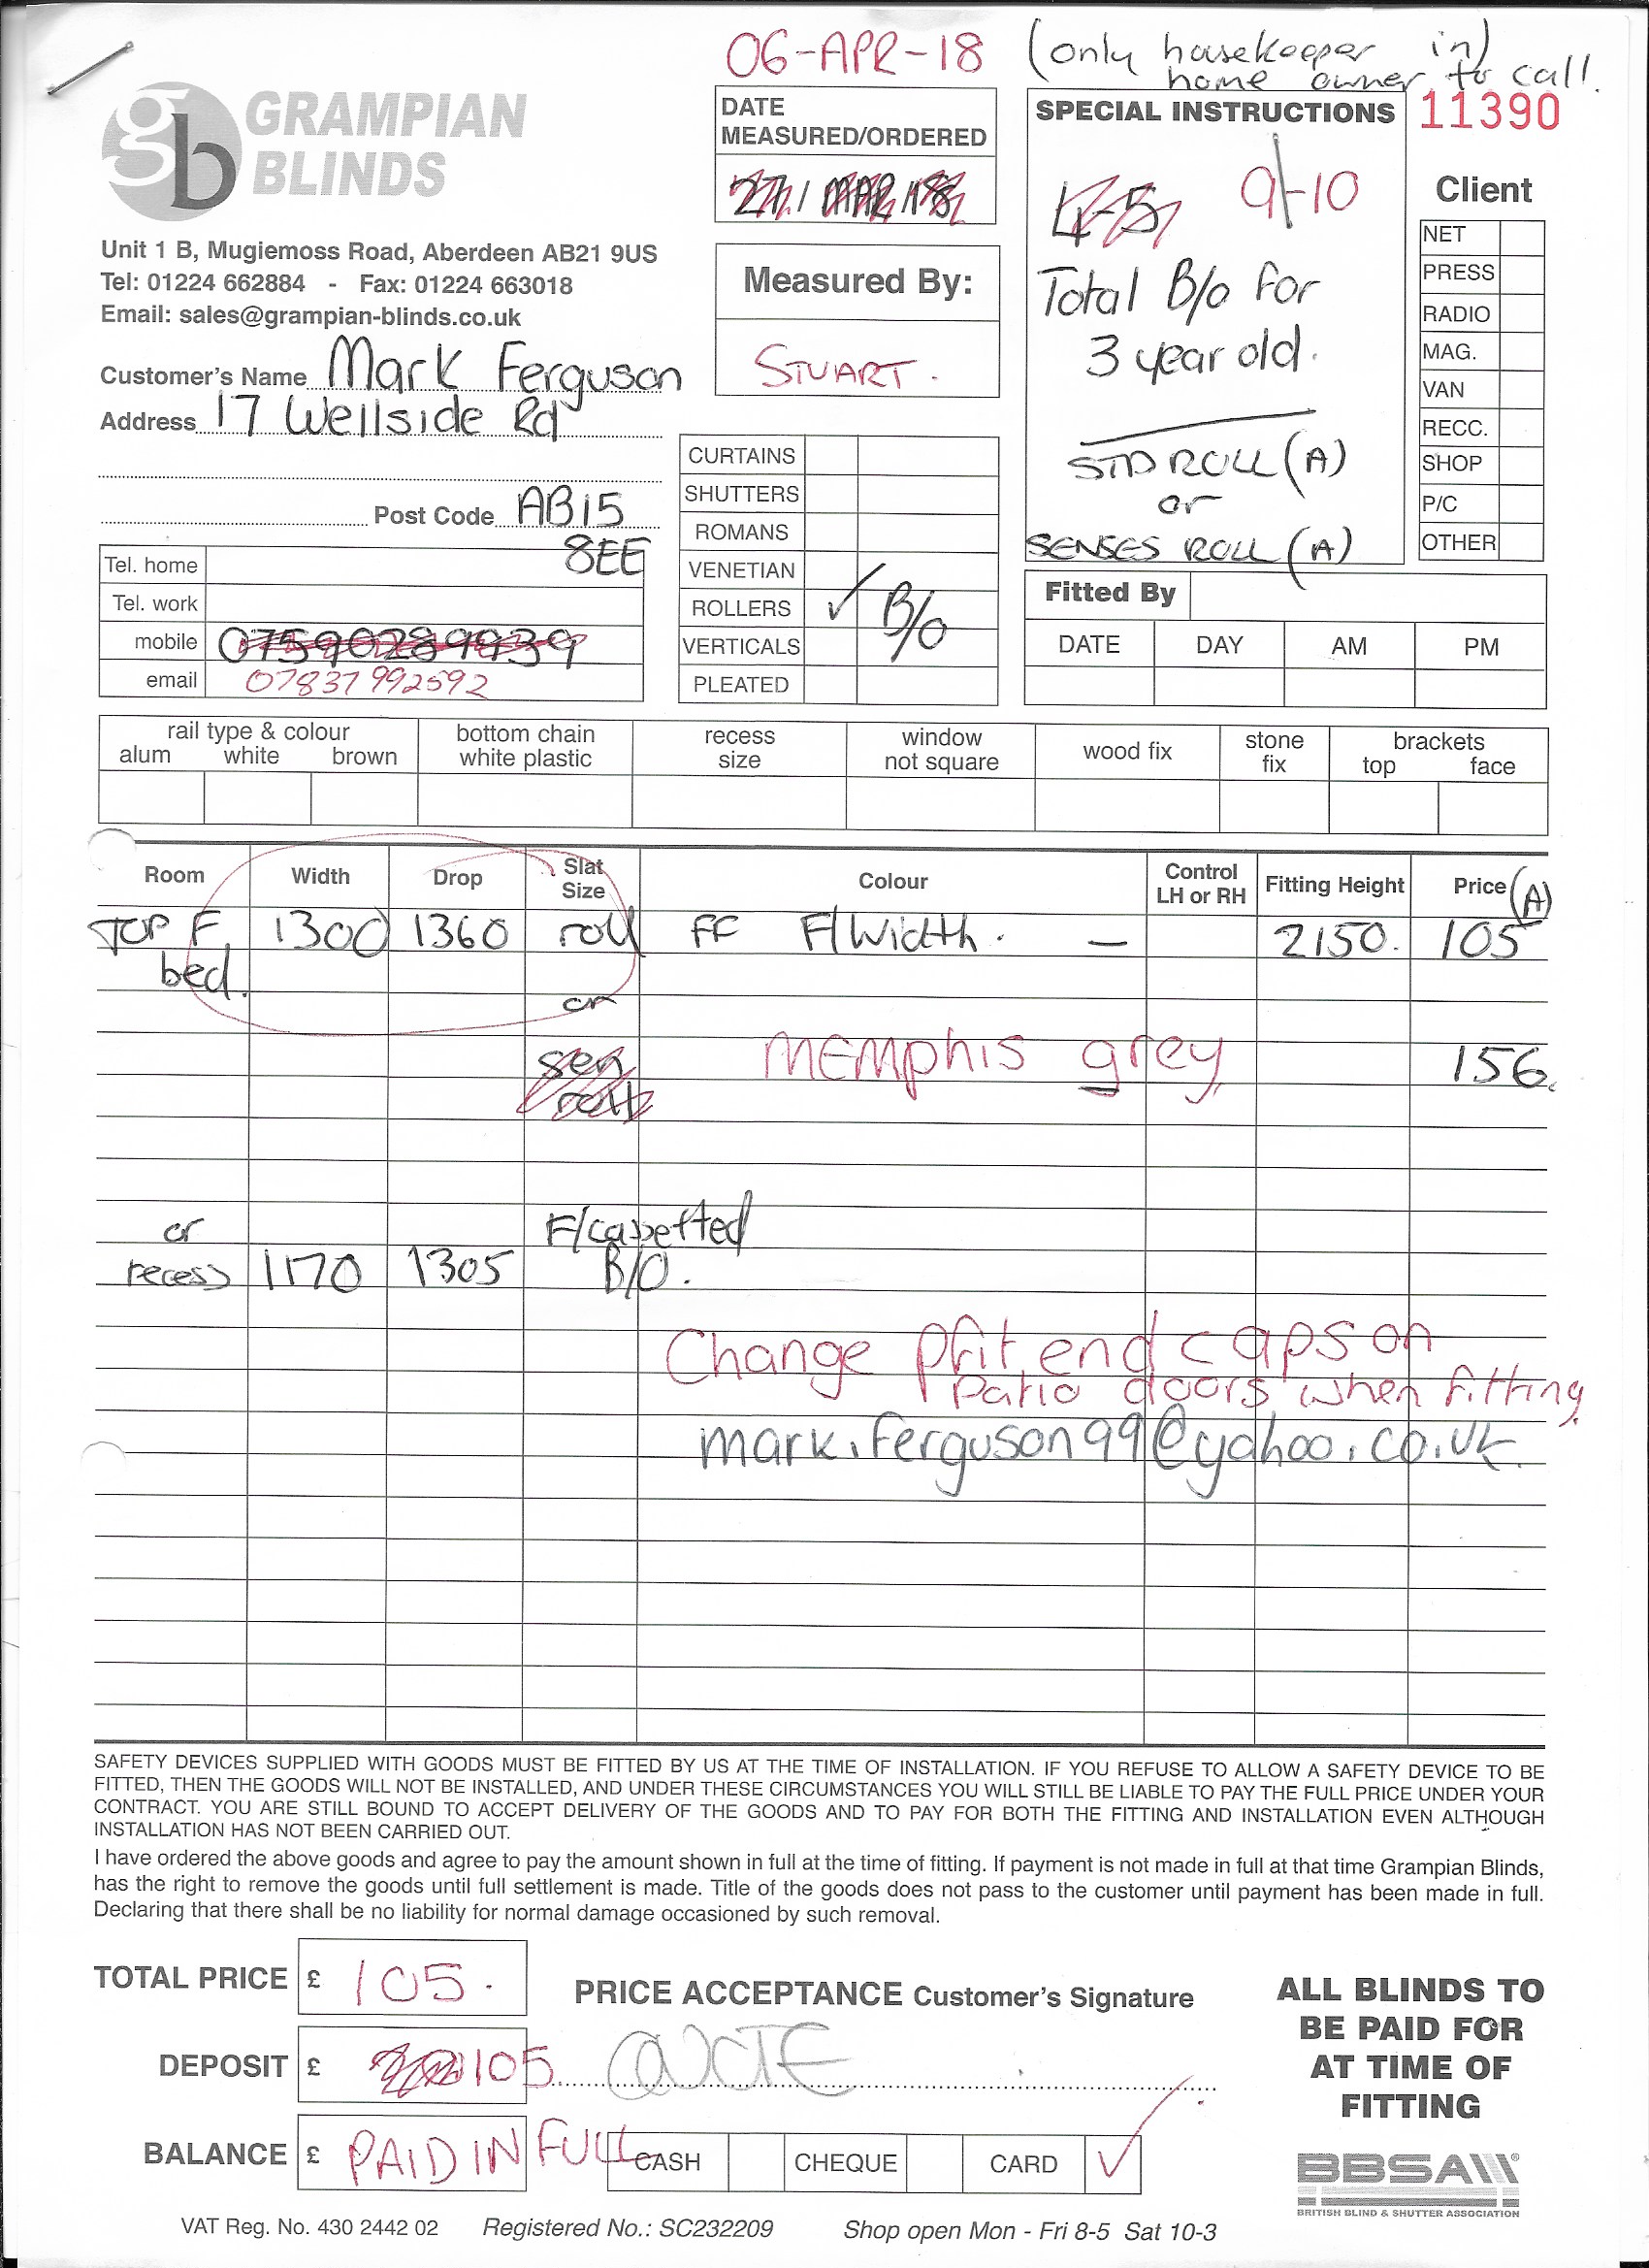 06-APR-18 (only housekeeper in)
home owner to call.
11390
GRAMPIAN
BLINDS
gb
Unit 1 B, Mugiemoss Road, Aberdeen AB21 9US
Tel: 01224 662884 - Fax: 01224 663018
Email: sales@grampian-blinds.co.uk
Customer's Name Mark Ferguson
Address 17 Wellside Rd
Post Code AB15
8EE
Tel. home
Tel. work
mobile 07590289939
email 07837992592
DATE
MEASURED/ORDERED
27/MAR/18
Measured By:
STUART.
CURTAINS
SHUTTERS
ROMANS
VENETIAN
ROLLERS ✓ B/o
VERTICALS
PLEATED
SPECIAL INSTRUCTIONS
4-5 9-10
Total B/o for
3 year old.
STD ROLL (A)
or
SENSES ROLL (A)
Client
NET
PRESS
RADIO
MAG.
VAN
RECC.
SHOP
P/C
OTHER
Fitted By
DATE DAY AM PM
rail type & colour
alum white brown
bottom chain
white plastic
recess
size
window
not square
wood fix
stone
fix
brackets
top face
Room Width Drop Slat Size Colour Control LH or RH Fitting Height Price (A)
TOP F 1300 1360 roll FF F/Width. — 2150. 105
bed.
or
sen MEMPHIS grey 156.
roll
or F/cassetted
recess 1170 1305 B/O.
Change pfit end caps on
patio doors when fitting
mark.ferguson99@yahoo.co.uk
SAFETY DEVICES SUPPLIED WITH GOODS MUST BE FITTED BY US AT THE TIME OF INSTALLATION. IF YOU REFUSE TO ALLOW A SAFETY DEVICE TO BE
FITTED, THEN THE GOODS WILL NOT BE INSTALLED, AND UNDER THESE CIRCUMSTANCES YOU WILL STILL BE LIABLE TO PAY THE FULL PRICE UNDER YOUR
CONTRACT. YOU ARE STILL BOUND TO ACCEPT DELIVERY OF THE GOODS AND TO PAY FOR BOTH THE FITTING AND INSTALLATION EVEN ALTHOUGH
INSTALLATION HAS NOT BEEN CARRIED OUT.
I have ordered the above goods and agree to pay the amount shown in full at the time of fitting. If payment is not made in full at that time Grampian Blinds,
has the right to remove the goods until full settlement is made. Title of the goods does not pass to the customer until payment has been made in full.
Declaring that there shall be no liability for normal damage occasioned by such removal.
TOTAL PRICE £ 105.
DEPOSIT £ 105
BALANCE £ PAID IN FULL
PRICE ACCEPTANCE Customer's Signature
QUOTE
CASH CHEQUE CARD ✓
ALL BLINDS TO
BE PAID FOR
AT TIME OF
FITTING
BBSA
BRITISH BLIND & SHUTTER ASSOCIATION
VAT Reg. No. 430 2442 02 Registered No.: SC232209 Shop open Mon - Fri 8-5 Sat 10-3